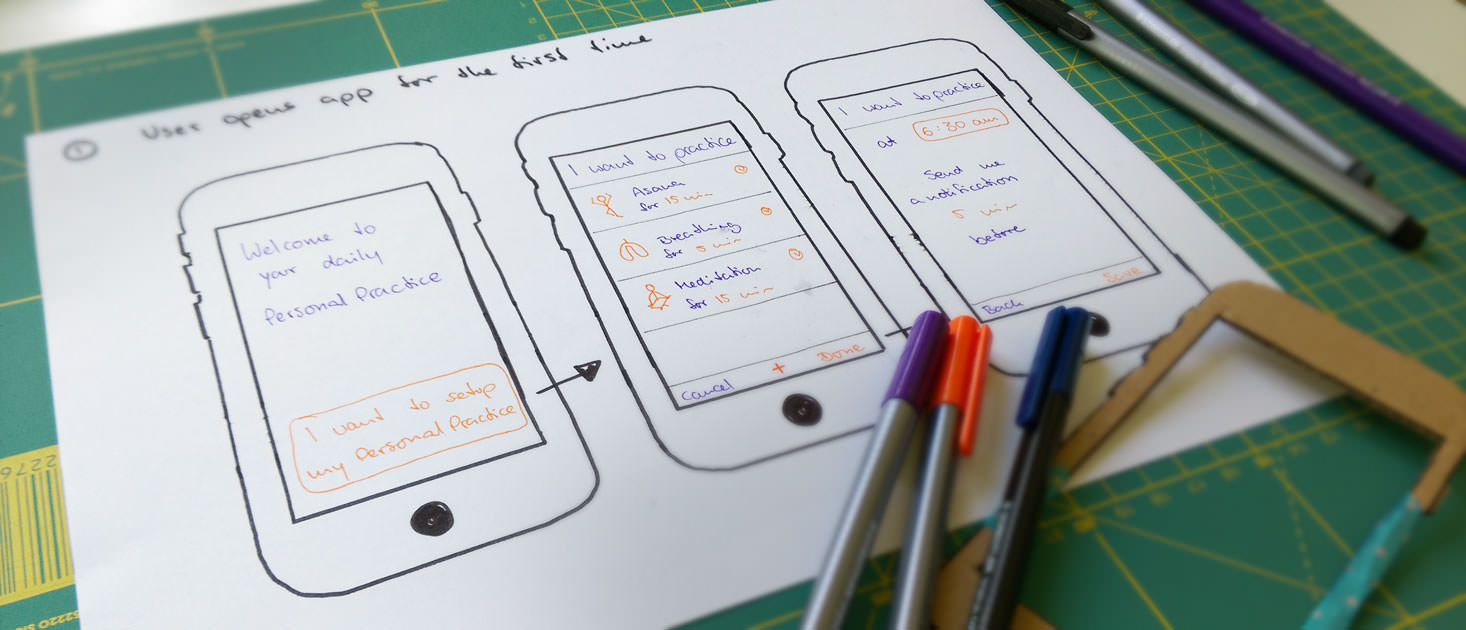 1 User opens app for the first time
Welcome to
your daily
Personal Practice
I want to setup
my Personal Practice
I want to practice
Asana
for 15 min
Breathing
for 5 min
Meditation
for 15 min
Cancel + Done
I want to practice
at 6:30 am
Send me
a notification
5 min
before
Back Save